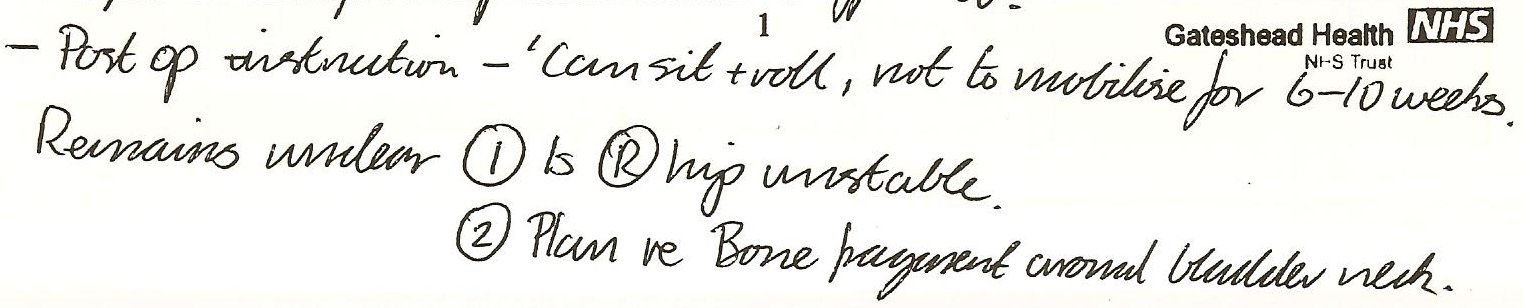 1
Gateshead Health NHS
NHS Trust
- Post op instruction - 'Can sit + roll, not to mobilise for 6-10 weeks.
Remains unclear ① Is Ⓡ hip unstable.
② Plan re Bone fragment around bladder neck.